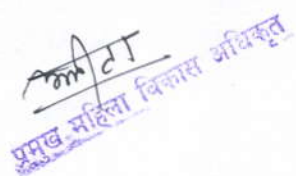 प्रमुख महिला विकास अधिकृत